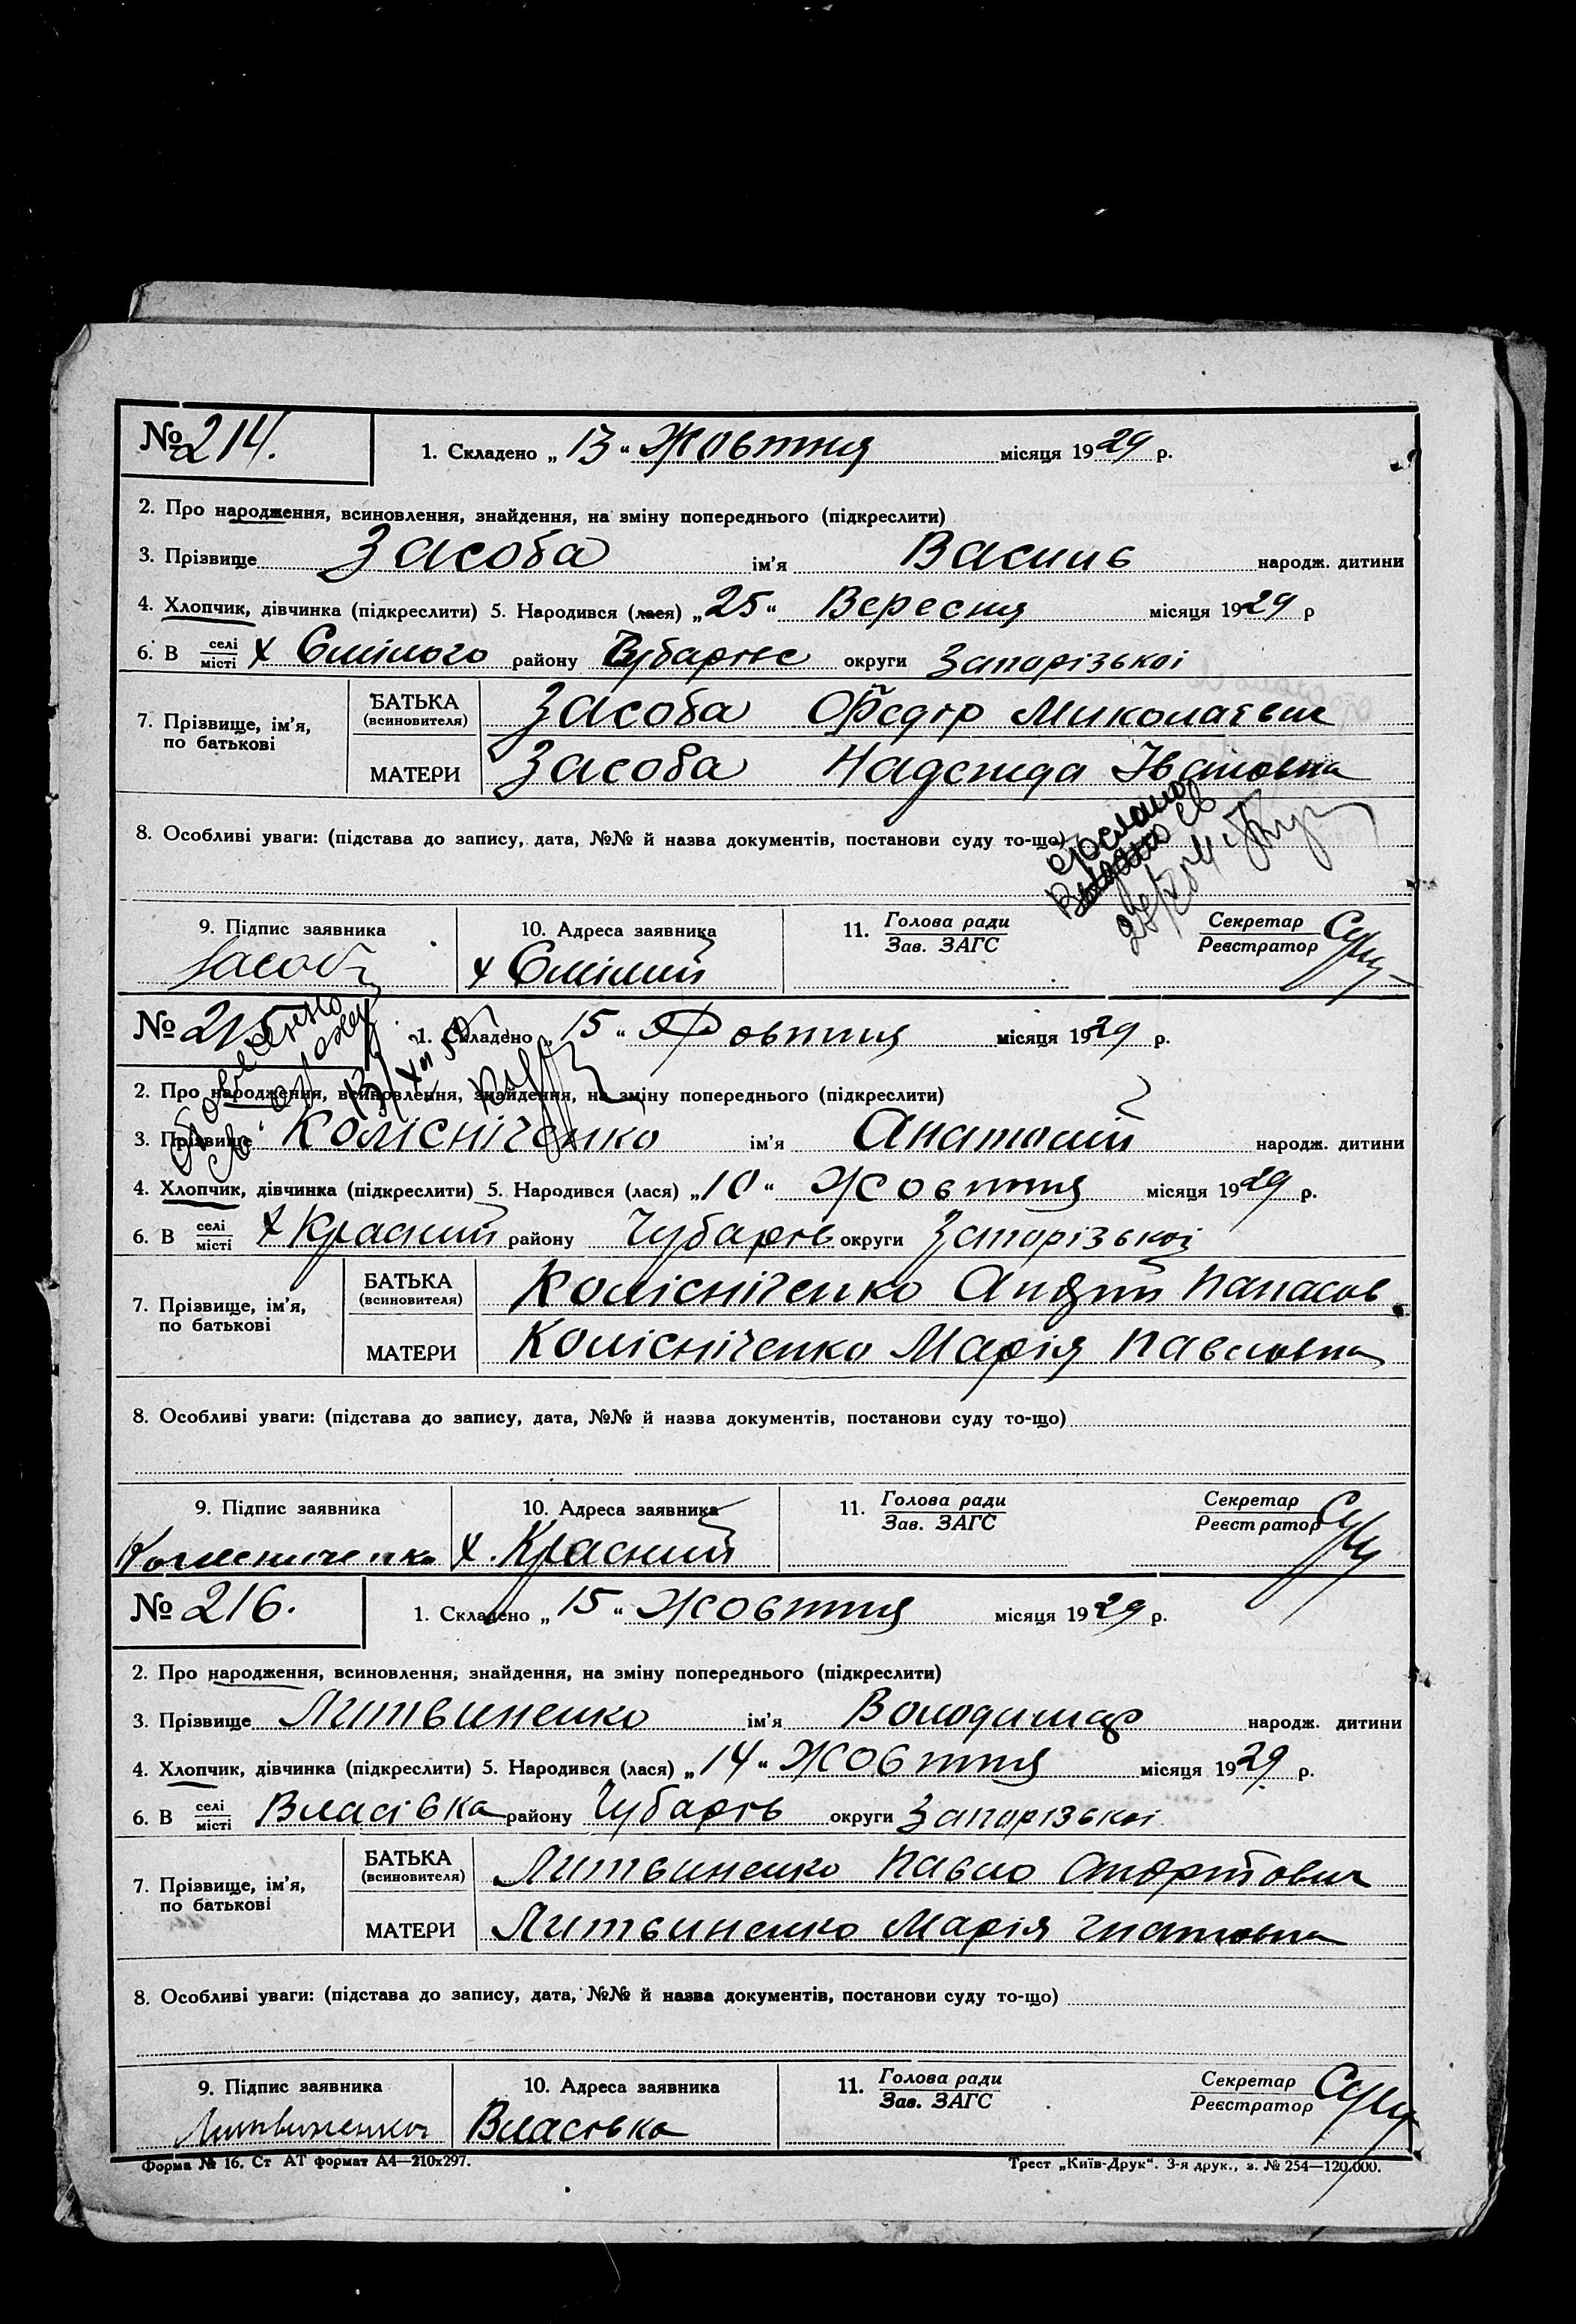 № 214. 1. Складено „ 13 “ Жовтня місяця 1929 р.
2. Про народження, всиновлення, знайдення, на зміну попереднього (підкреслити)
3. Прізвище Засоба ім’я Василь народж. дитини
4. Хлопчик, дівчинка (підкреслити) 5. Народився (лася) „ 25 “ Вересня місяця 1929 р
6. В селі/місті х Смілого району Чубарівс округи Запорізької
7. Прізвище, ім’я, по батькові
БАТЬКА (всиновителя) Засоба Федір Миколаєвич
МАТЕРИ Засоба Надежда Івановна
8. Особливі уваги: (підстава до запису, дата, №№ й назва документів, постанови суду то-що)
Послано
9. Підпис заявника 10. Адреса заявника 11. Голова ради/Зав. ЗАГС Секретар/Реєстратор
Засоба х Смілий
№ 215 1. Складено „ 15 “ Жовтня місяця 1929 р.
2. Про народження, всиновлення, знайдення, на зміну попереднього (підкреслити)
3. Прізвище Колісніченко ім’я Анатолій народж. дитини
4. Хлопчик, дівчинка (підкреслити) 5. Народився (лася) „ 10 “ Жовтня місяця 1929 р.
6. В селі/місті х Красний району Чубарів округи Запорізької
7. Прізвище, ім’я, по батькові
БАТЬКА (всиновителя) Колісніченко Андрій Панасов
МАТЕРИ Колісніченко Марія Павловна
8. Особливі уваги: (підстава до запису, дата, №№ й назва документів, постанови суду то-що)
9. Підпис заявника 10. Адреса заявника 11. Голова ради/Зав. ЗАГС Секретар/Реєстратор
Колесниченко х. Красний
№ 216. 1. Складено „ 15 “ Жовтня місяця 1929 р.
2. Про народження, всиновлення, знайдення, на зміну попереднього (підкреслити)
3. Прізвище Литвиненко ім’я Володимир народж. дитини
4. Хлопчик, дівчинка (підкреслити) 5. Народився (лася) „ 14 “ Жовтня місяця 1929 р.
6. В селі/місті Власівка району Чубарів округи Запорізької
7. Прізвище, ім’я, по батькові
БАТЬКА (всиновителя) Литвиненко Павло Андрійович
МАТЕРИ Литвиненко Марія Гнатовна
8. Особливі уваги: (підстава до запису, дата, №№ й назва документів, постанови суду то-що)
9. Підпис заявника 10. Адреса заявника 11. Голова ради/Зав. ЗАГС Секретар/Реєстратор
Литвиненко Власівка
Форма № 16. Ст АТ формат А4—210х297. Трест „Київ-Друк“. 3-я друк., з. № 254—120.000.